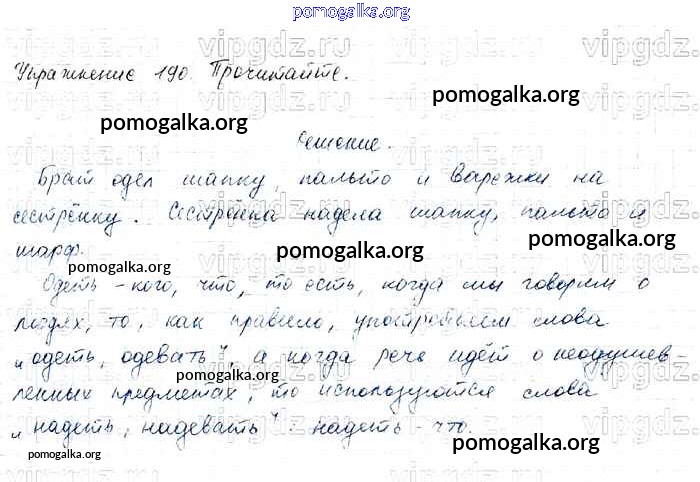 pomogalka.org
vipgdz.ru vipgdz.ru vipgdz.ru
Упражнение 190. Прочитайте.
pomogalka.org
pomogalka.org
Решение.
Брат одел шапку, пальто и варежки на
сестрёнку. Сестрёнка надела шапку, пальто и
шарф.
pomogalka.org
pomogalka.org
pomogalka.org
Одеть - кого, что, то есть, когда мы говорим о
людях, то, как правило, употребляем слова
"одеть, одевать", а когда речь идёт о неодушев-
pomogalka.org
ленных предметах, то используются слова
"надеть, надевать". надеть - что.
pomogalka.org
pomogalka.org